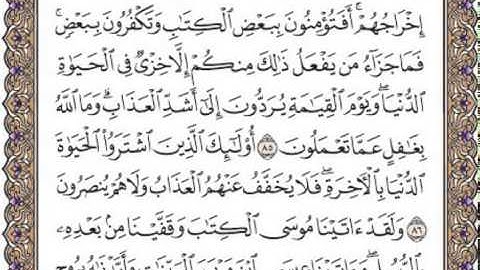 إِخْرَاجُهُمْ ۚ أَفَتُؤْمِنُونَ بِبَعْضِ ٱلْكِتَٰبِ وَتَكْفُرُونَ بِبَعْضٍ ۚ
فَمَا جَزَآءُ مَن يَفْعَلُ ذَٰلِكَ مِنكُمْ إِلَّا خِزْىٌ فِى ٱلْحَيَوٰةِ
ٱلدُّنْيَا ۖ وَيَوْمَ ٱلْقِيَٰمَةِ يُرَدُّونَ إِلَىٰٓ أَشَدِّ ٱلْعَذَابِ ۗ وَمَا ٱللَّهُ
بِغَٰفِلٍ عَمَّا تَعْمَلُونَ ٨٥ أُو۟لَٰٓئِكَ ٱلَّذِينَ ٱشْتَرَوُا۟ ٱلْحَيَوٰةَ
ٱلدُّنْيَا بِٱلْءَاخِرَةِ ۖ فَلَا يُخَفَّفُ عَنْهُمُ ٱلْعَذَابُ وَلَا هُمْ يُنصَرُونَ
٨٦ وَلَقَدْ ءَاتَيْنَا مُوسَى ٱلْكِتَٰبَ وَقَفَّيْنَا مِنۢ بَعْدِهِۦ